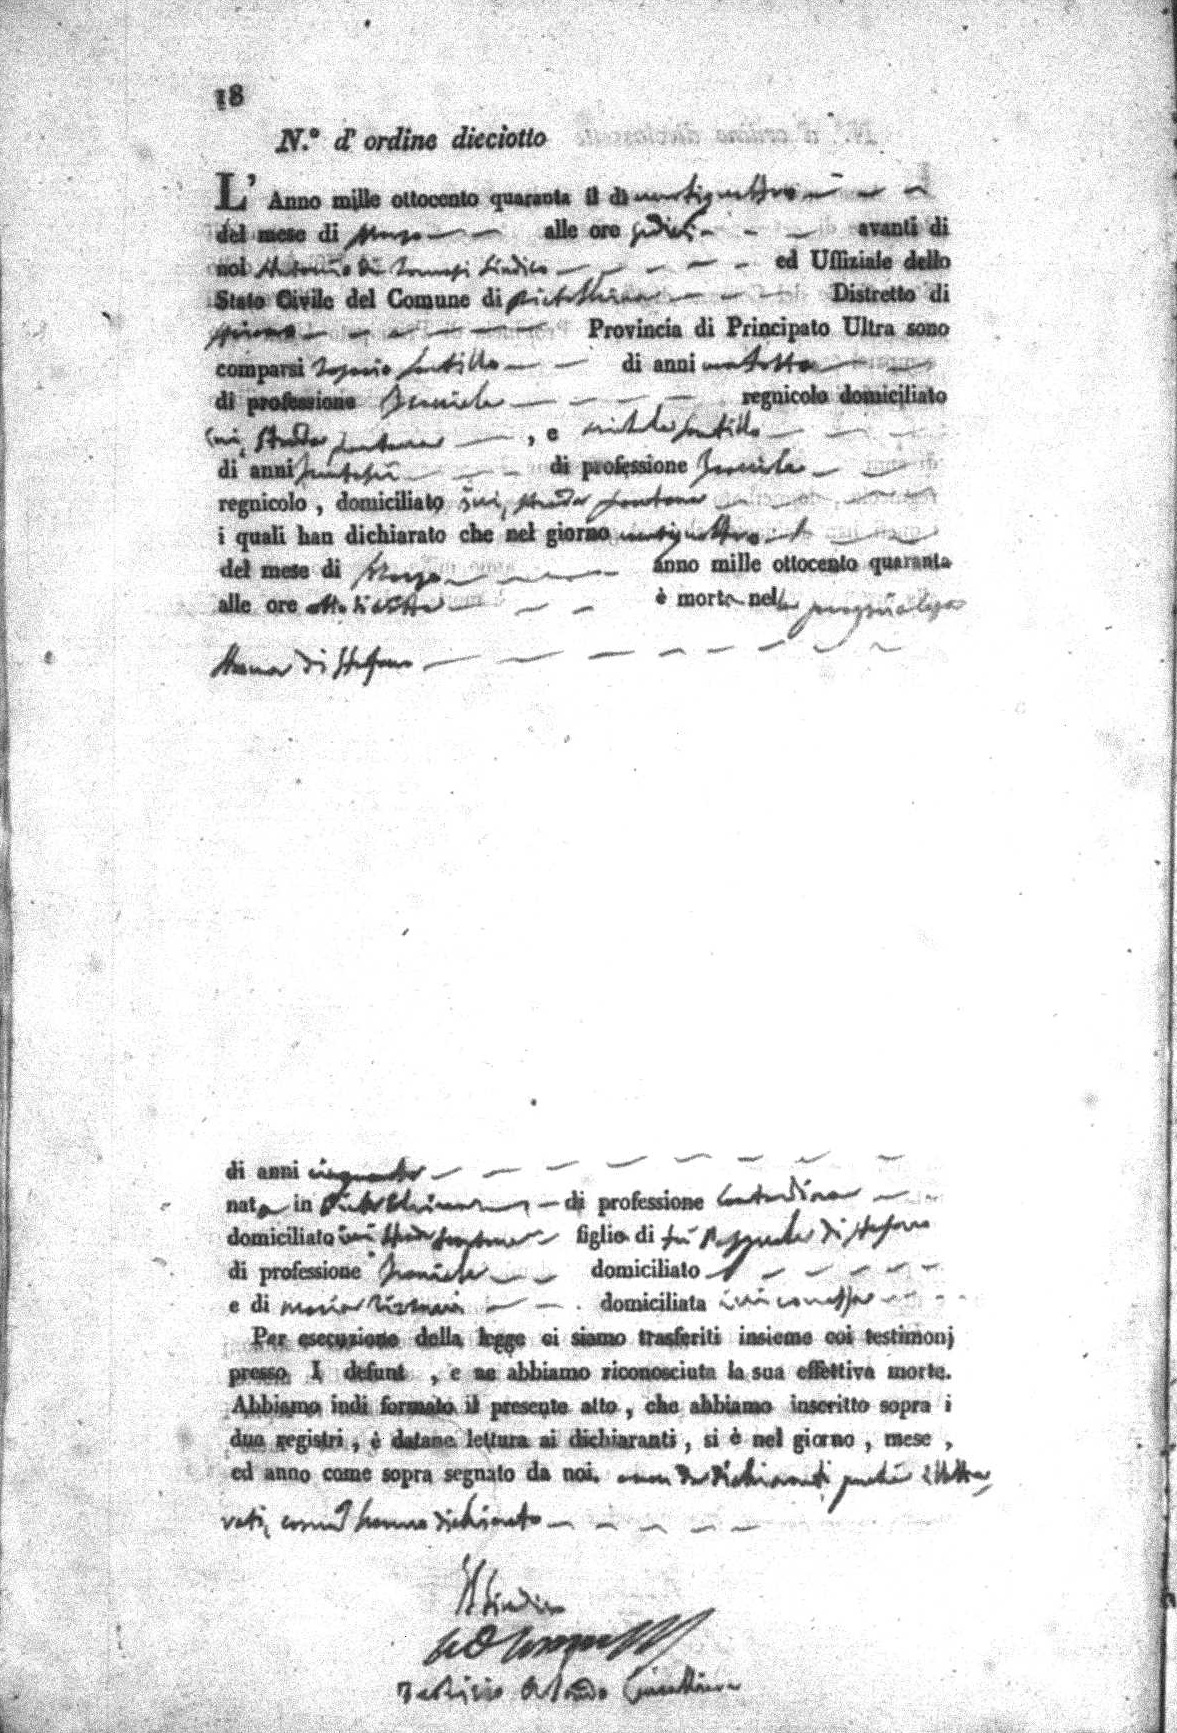 18
N.° d' ordine dieciotto
L' Anno mille ottocento quaranta il dì ventiquattro
del mese di Marzo alle ore sedici avanti di
noi Antonio di Tomasi Sindico ed Uffiziale dello
Stato Civile del Comune di Distretto di
Provincia di Principato Ultra sono
comparsi Santillo di anni
di professione Bracciale regnicolo domiciliato
ivi, Strada Fontana , e Michele Santillo
di anni di professione Bracciale
regnicolo , domiciliato ivi, strada fontana
i quali han dichiarato che nel giorno ventiquattro
del mese di Marzo anno mille ottocento quaranta
alle ore è morta nella
Anna di Stefano
di anni cinquanta
nata in di professione Contadina
domiciliata ivi Strada fontana figlia di fù Pasquale di Stefano
di professione Bracciale domiciliato
e di Maria domiciliata ivi
Per esecuzione della legge ci siamo trasferiti insieme coi testimonj
presso I defunt , e ne abbiamo riconosciuta la sua effettiva morte.
Abbiamo indi formato il presente atto , che abbiamo inscritto sopra i
due registri , è datane lettura ai dichiaranti , si è nel giorno , mese ,
ed anno come sopra segnato da noi. e non da dichiaranti perchè illitte
rati, come hanno dichiarato
Il Sindico